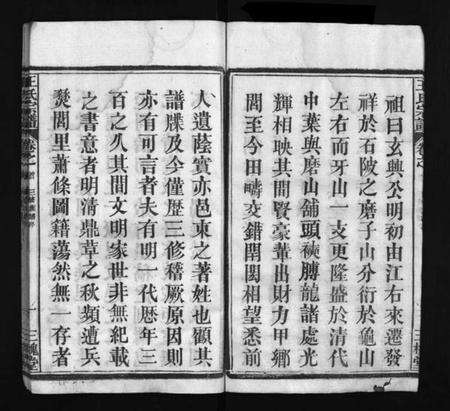 祖曰玄興公明初由江右來遷發
祥於石陂之磨子山分衍於龜山
左右而牙山一支更隆盛於清代
中葉與磨山舖頭橫膊龍諸處光
輝相映其間賢豪輩出財力甲鄉
閭至今田疇交錯閈閎相望悉前
人遺蔭實亦邑東之著姓也顧其
譜牒及今僅歷三修稽厥原因則
亦有可言者夫有明一代歷年三
百之久其間文明家世非無紀載
之書意者明清鼎革之秋頻遭兵
燹閭里蕭條圖籍蕩然無一存者
王氏宗譜
卷之
一
三槐堂